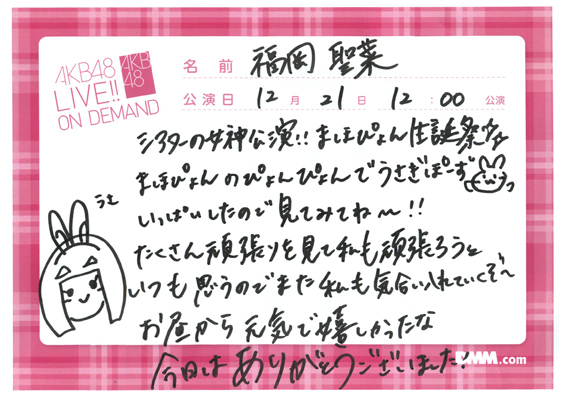 AKB48
LIVE!!
ON DEMAND
AKB
48
名前 福岡 聖菜
公演日 12月21日 12:00 公演
シアターの女神公演!! まほぴょん生誕祭
まほぴょんのぴょんぴょんでうさぎぽーず
いっぱいしたので見てみてね〜!!
たくさん頑張りを見て私も頑張ろうと
いつも思うのでまた私も気合い入れていくぞ〜
お昼から元気で嬉しかったな
今日はありがとうございました!
DMM.com